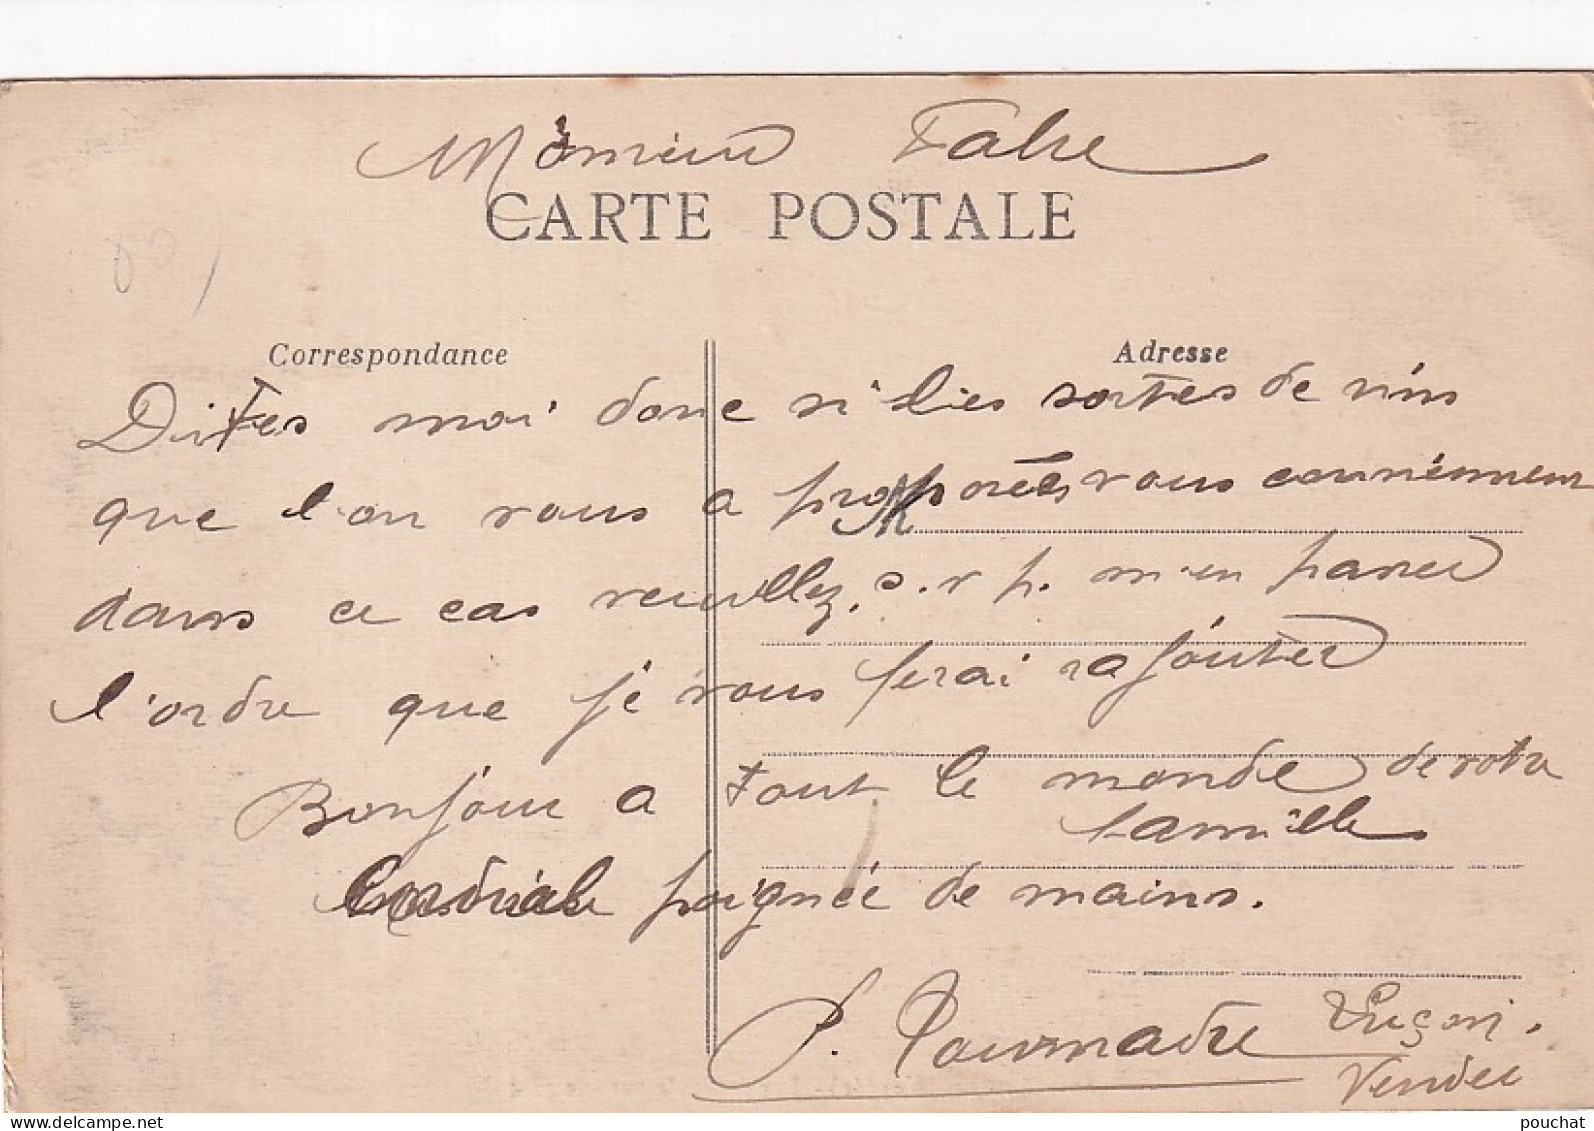 Monsieur Fabre
CARTE POSTALE
Correspondance
Adresse
Dittes moi donc si les sortes de vins
que l'on vous a proposées vous conviennent
dans ce cas veuillez, s. v p. m'en passer
l'ordre que je vous ferai rajouter
Bonjour a tout le monde de votre
famille
Cordiale poignée de mains.
P. Pournadre Luçon.
Vendée
delcampe.net
pouchat